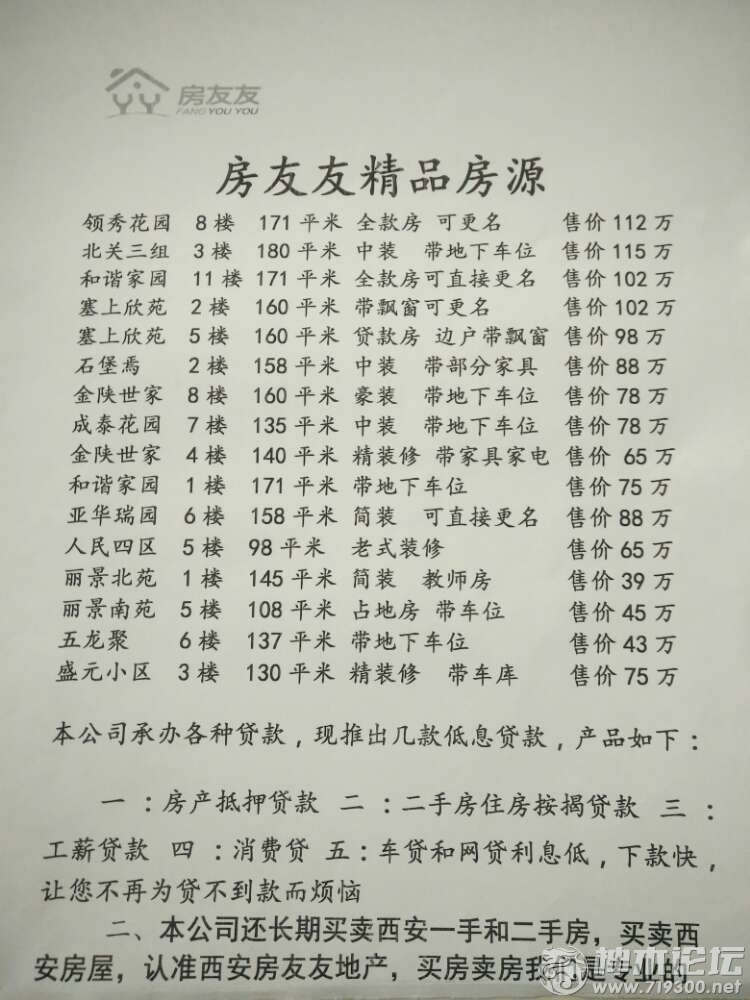 房友友
FANG YOU YOU
房友友精品房源
领秀花园 8楼 171平米 全款房 可更名 售价112万
北关三组 3楼 180平米 中装 带地下车位 售价115万
和谐家园 11楼 171平米 全款房可直接更名 售价102万
塞上欣苑 2楼 160平米 带飘窗可更名 售价102万
塞上欣苑 5楼 160平米 贷款房 边户带飘窗 售价98万
石堡焉 2楼 158平米 中装 带部分家具 售价88万
金陕世家 8楼 160平米 豪装 带地下车位 售价78万
成泰花园 7楼 135平米 中装 带地下车位 售价78万
金陕世家 4楼 140平米 精装修 带家具家电 售价65万
和谐家园 1楼 171平米 带地下车位 售价75万
亚华瑞园 6楼 158平米 简装 可直接更名 售价88万
人民四区 5楼 98平米 老式装修 售价65万
丽景北苑 1楼 145平米 简装 教师房 售价39万
丽景南苑 5楼 108平米 占地房 带车位 售价45万
五龙聚 6楼 137平米 带地下车位 售价43万
盛元小区 3楼 130平米 精装修 带车库 售价75万
本公司承办各种贷款，现推出几款低息贷款，产品如下：
一：房产抵押贷款 二：二手房住房按揭贷款 三：
工薪贷款 四：消费贷 五：车贷和网贷利息低，下款快，
让您不再为贷不到款而烦恼
二、本公司还长期买卖西安一手和二手房，买卖西
安房屋，认准西安房友友地产，买房卖房我们是专业的
神木论坛
www.719300.net